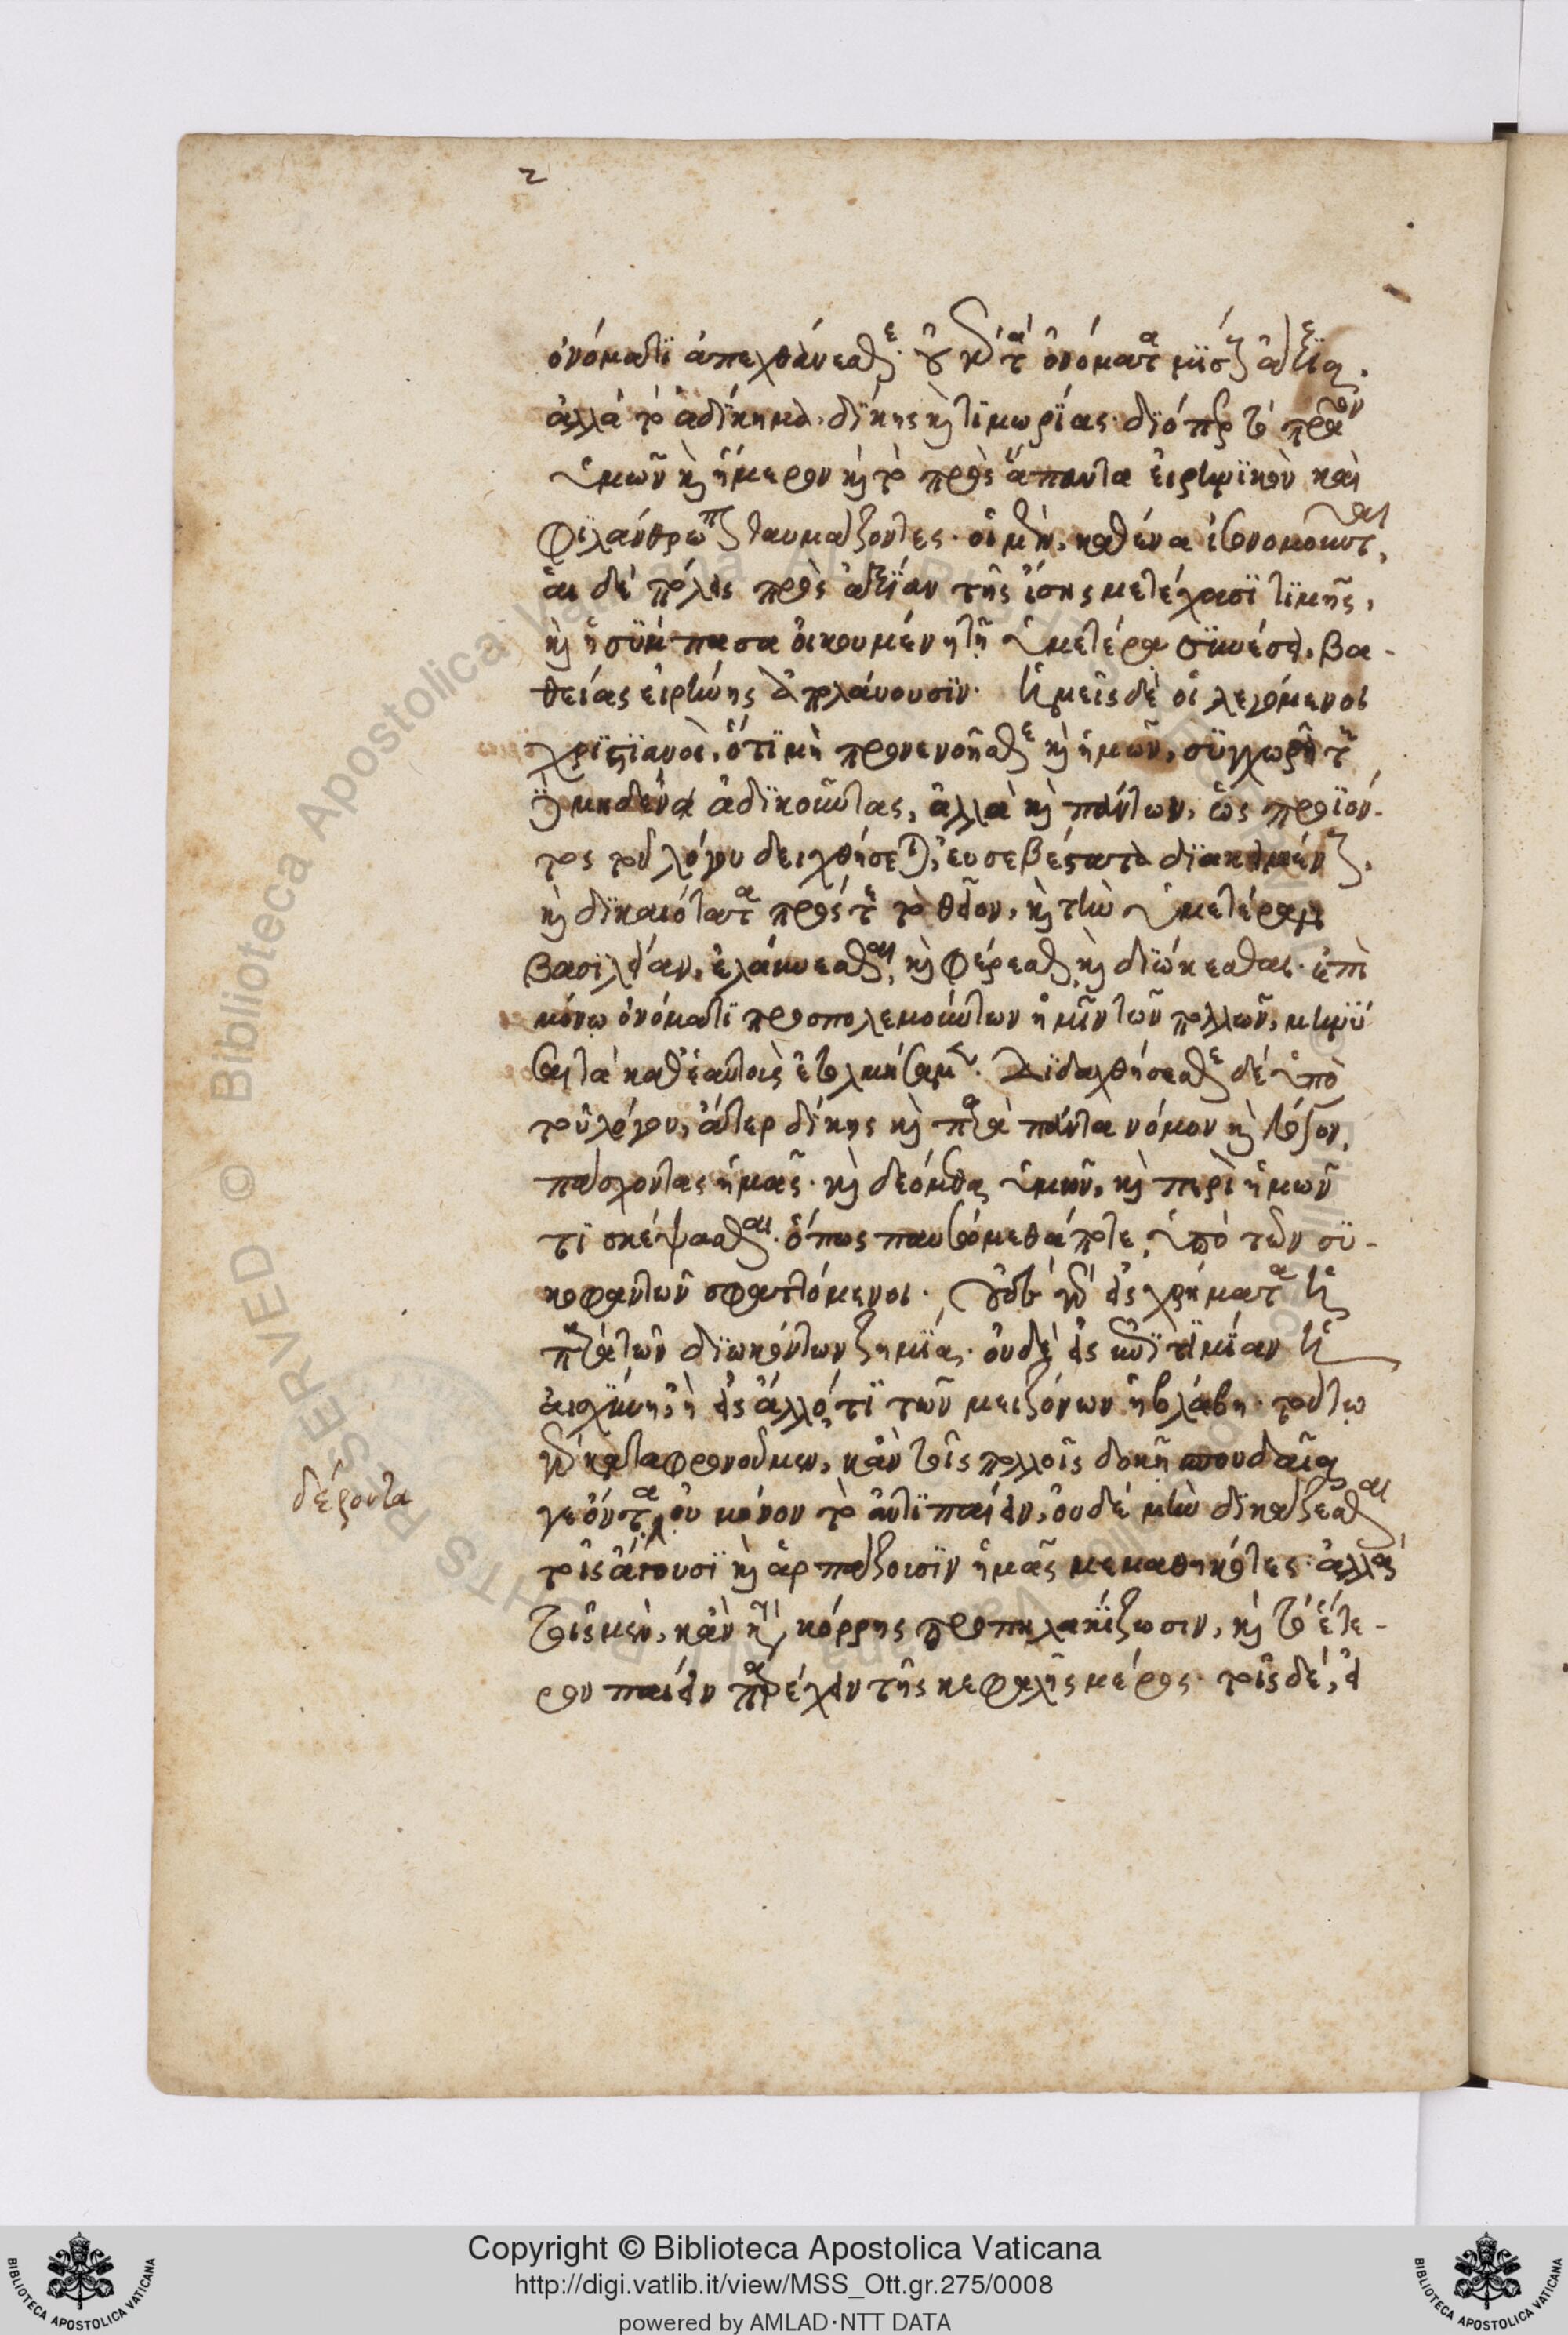 2
ὀνόματι ἀπεχθάνεσθε· οὐ γὰρ τὰ ὀνόματα μίσους ἄξια.
ἀλλὰ τὸ ἀδίκημα δίκης καὶ τιμωρίας· διόπερ τὸ πρᾶον
ὑμῶν καὶ ἥμερον καὶ τὸ πρὸς ἅπαντα εἰρηνικὸν καὶ
φιλάνθρωπον θαυμάζοντες· οἱ μὲν, καθένα ἰσονομοῦνται,
αἱ δὲ πόλεις πρὸς ἀξίαν τῆς ἴσης μετέχουσι τιμῆς,
καὶ ἡ σύμπασα οἰκουμένη τῇ ὑμετέρα συνέσει, βα-
θείας εἰρήνης ἀπολαύουσιν· ἡμεῖς δὲ οἱ λεγόμενοι
χριστιανοὶ, ὅτι μὴ προνενόησθε καὶ ἡμῶν, συγχωρεῖτε
δὲ μηδένα ἀδικοῦντας, ἀλλὰ καὶ πάντων, ὡς προϊόν-
τος τοῦ λόγου δειχθήσεται, εὐσεβέστατα διακειμένους,
καὶ δικαιότατα πρός τε τὸ θεῖον, καὶ τὴν ὑμετέραν
βασιλείαν, ἐλαύνεσθαι, καὶ φέρεσθαι καὶ διώκεσθαι· ἐπὶ
μόνῳ ὀνόματι προσπολεμούντων ἡμῖν τῶν πολλῶν, μηνύ
σαι τὰ καθ' ἑαυτοὺς ἐτολμήσαμεν. Διδαχθήσεσθε δὲ ὑπὸ
τοῦ λόγου, ἄτερ δίκης καὶ παρὰ πάντα νόμον καὶ λόγον,
πάσχοντας ἡμᾶς· καὶ δεόμεθα ὑμῶν, καὶ περὶ ἡμῶν
τι σκέψασθαι· ὅπως παυσόμεθά ποτε, ὑπὸ τῶν συ-
κοφαντῶν σφαττόμενοι. οὐδὲ γὰρ εἰς χρήματα ἡ
παρὰ τῶν διωκόντων ζημία· οὐδὲ εἰς ἐπιτιμίαν ἡ
αἰσχύνη, ἢ εἰς ἄλλό τι τῶν μειζόνων ἡ βλάβη· τούτω
γὰρ καταφρονοῦμεν, κἂν τοῖς πολλοῖς δοκῇ σπουδαῖα
δέροντα
γε ὄντα, οὐ μόνον τὸ ἀντιπαίειν, οὐδὲ μὴν δικάζεσθαι
τοῖς ἄγουσι καὶ ἁρπάζουσιν ἡμᾶς μεμαθηκότες· ἀλλὰ
τοῖς μὲν, κἂν κατὰ κόρρης προπηλακίζωσιν, καὶ τὸ ἕτε-
ρον παίειν παρέχειν τῆς κεφαλῆς μέρος· τοῖς δὲ, εἰ
Copyright © Biblioteca Apostolica Vaticana
http://digi.vatlib.it/view/MSS_Ott.gr.275/0008
powered by AMLAD·NTT DATA